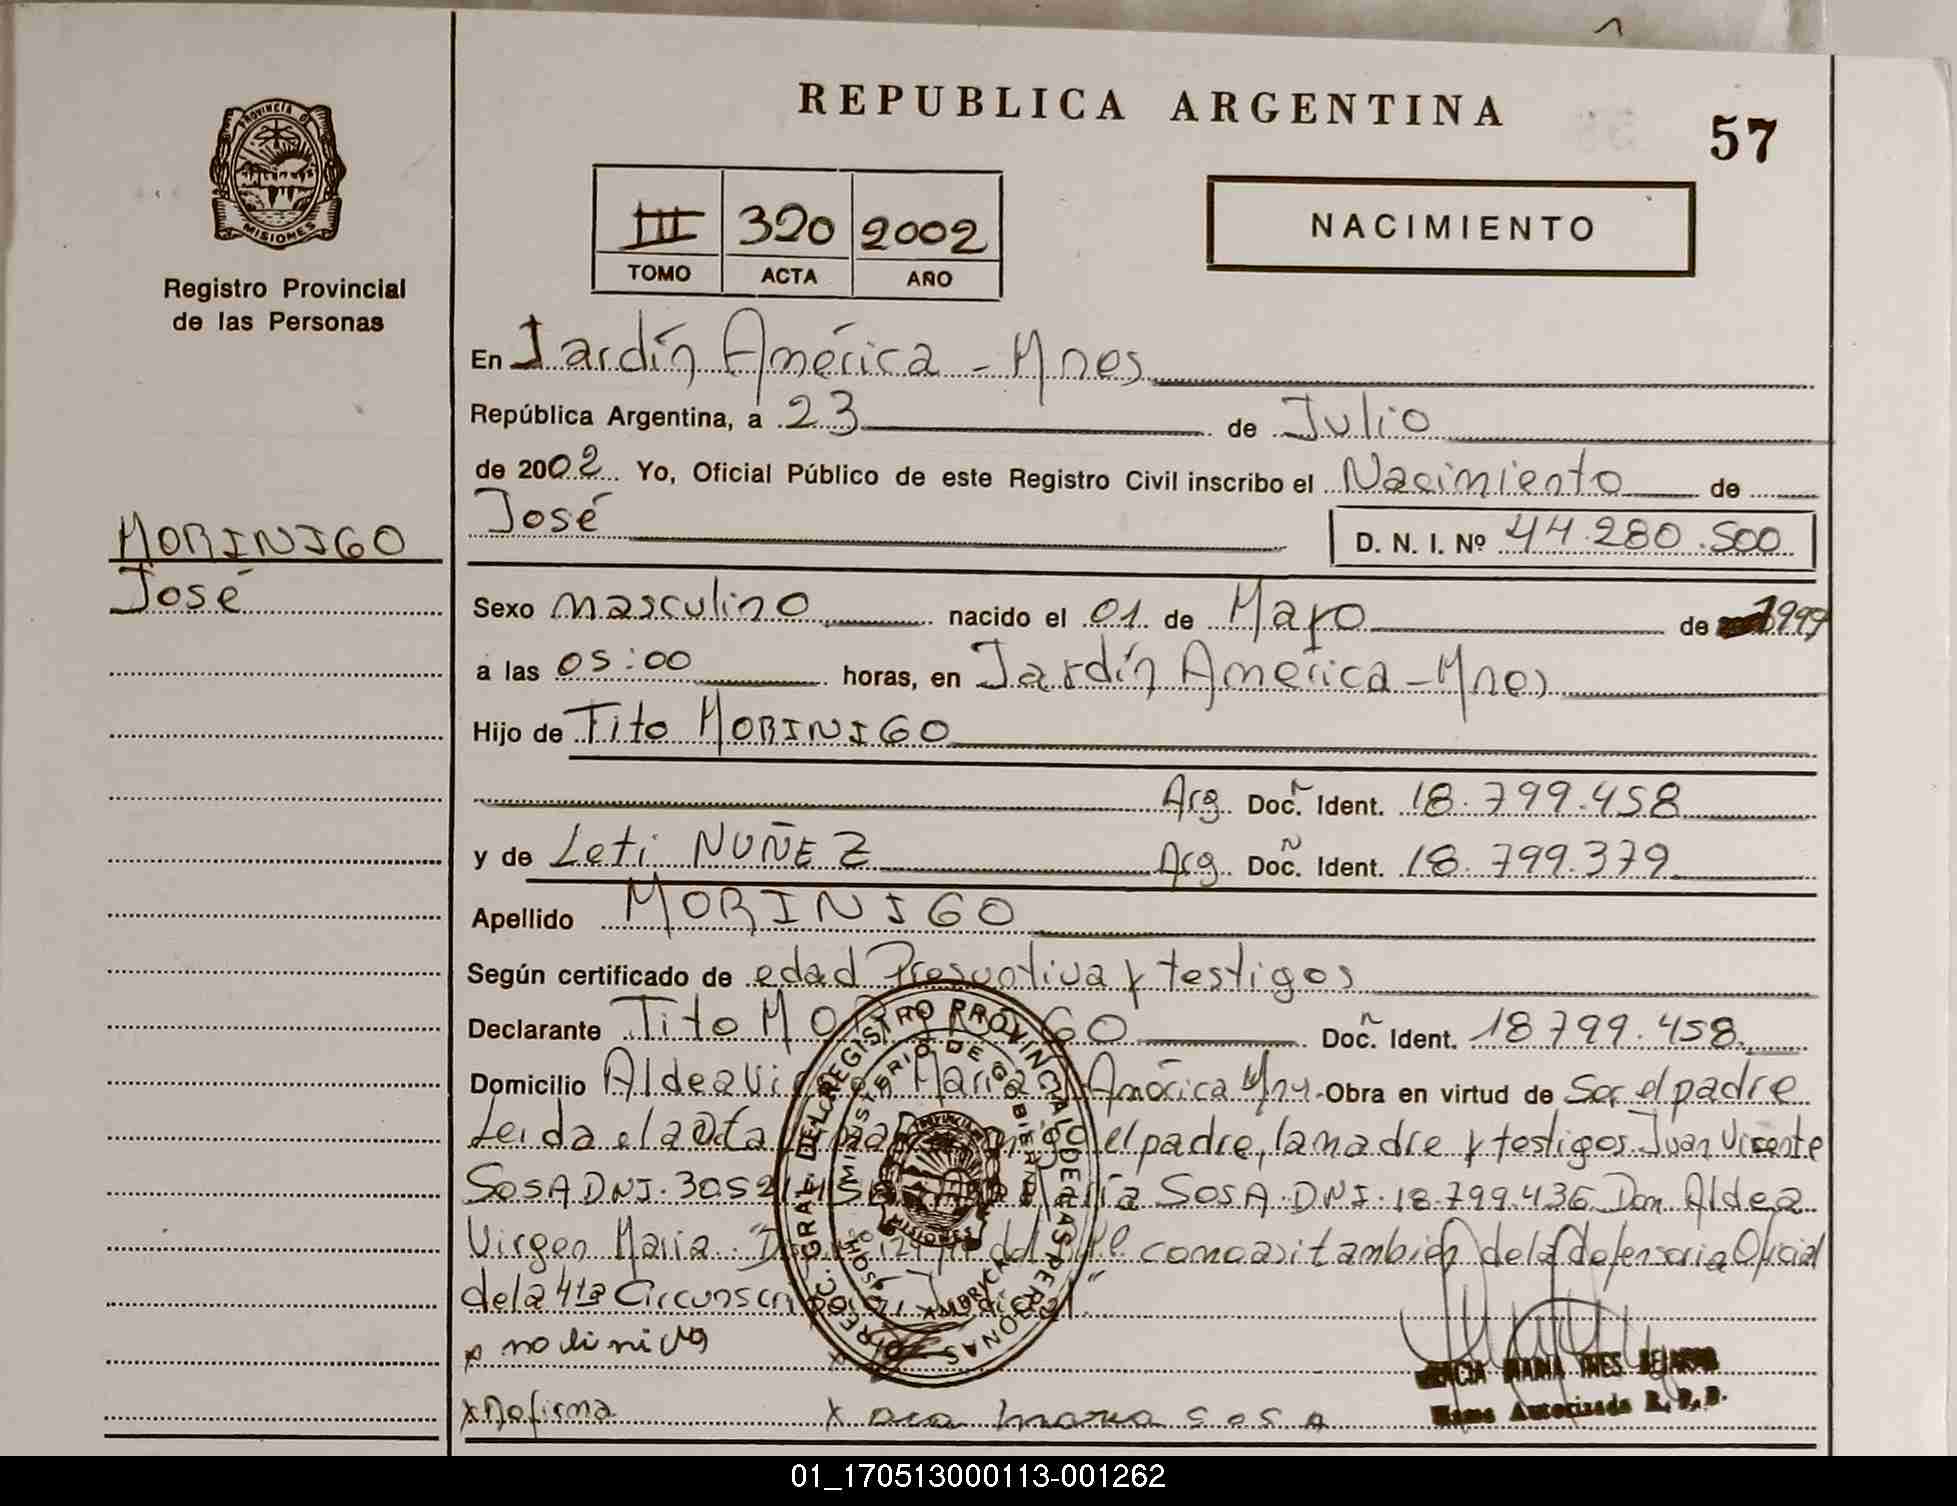 REPUBLICA ARGENTINA
57
PROVINCIA DE
MISIONES
Registro Provincial
de las Personas
III 320 2002
TOMO ACTA AÑO
NACIMIENTO
En Jardín América - Mnes
República Argentina, a 23 de Julio
de 2002 Yo, Oficial Público de este Registro Civil inscribo el Nacimiento de
José
D. N. I. Nº 44.280.500
MORINIGO
José
Sexo masculino nacido el 01 de Mayo de 1999
a las 05:00 horas, en Jardín América - Mnes
Hijo de Tito MORINIGO
Arg. Doc. Ident. 18.799.458
y de Leti NUÑEZ Arg. Doc. Ident. 18.799.379
Apellido MORINIGO
Según certificado de edad Presuntiva y testigos
Declarante Tito MO GO Doc. Ident. 18799.458
Domicilio Aldea Vi María América Obra en virtud de Ser el padre
Leida el acta el padre, la madre y testigos Juan Vicente
SOSA DNI. 30.521 María SOSA. DNI. 18.799.436 Dom. Aldea
Virgen María. como asi tambien de la defensoria Oficial
de la 4ta Circunscri
x no firma x Ana maria sosa
REGISTRO PROVINCIAL DE LAS PERSONAS
MINISTERIO DE GOBIERNO
MISIONES
MARIA INES
Autorizada
01_170513000113-001262